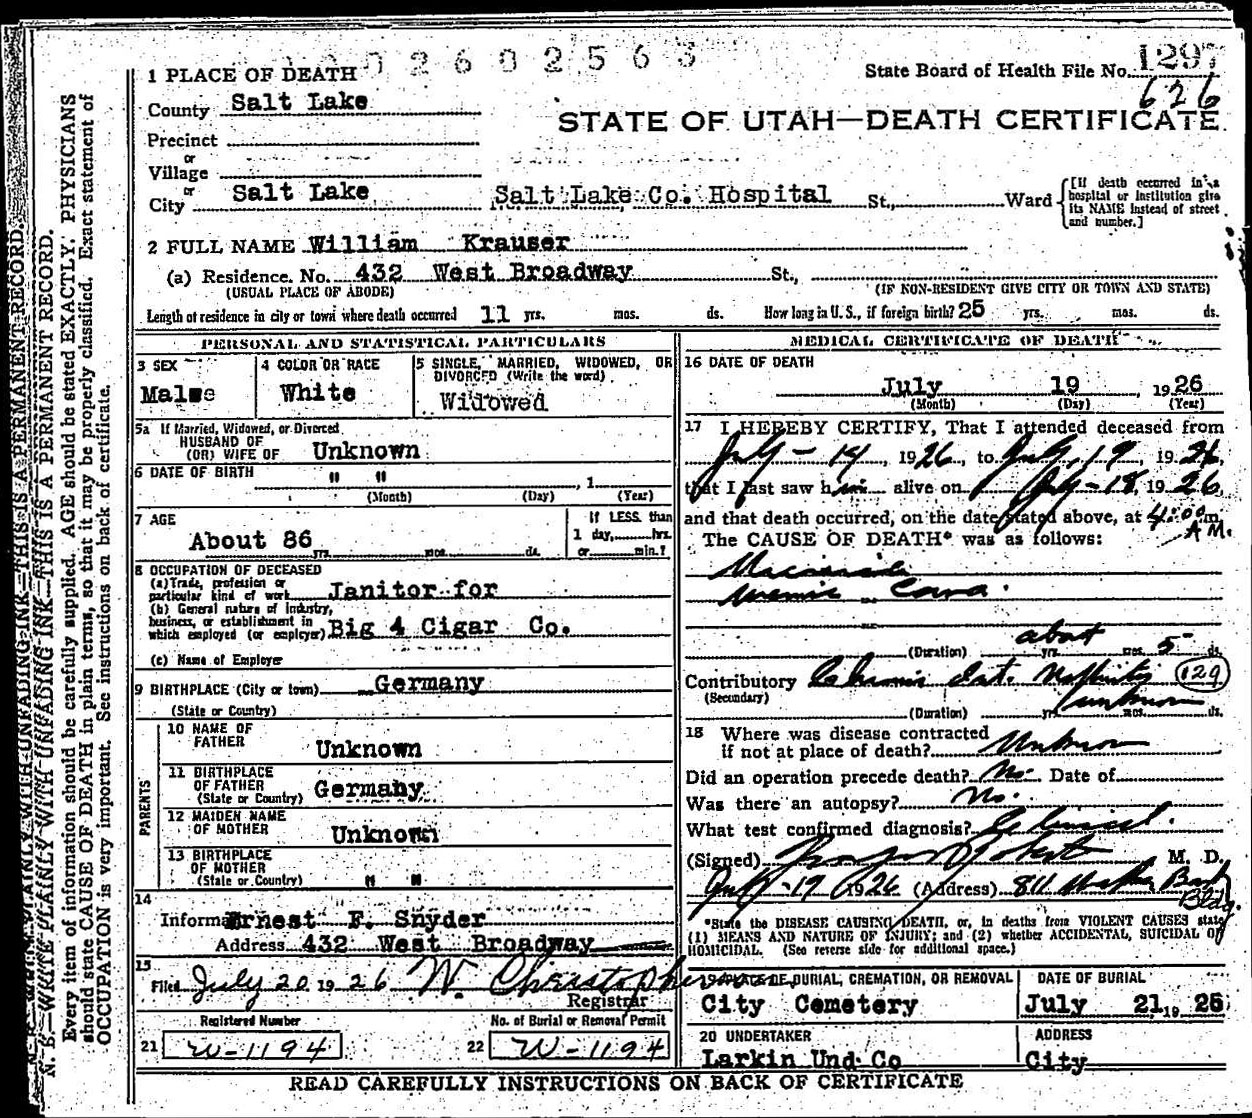 02602563
1297
State Board of Health File No.
626
1 PLACE OF DEATH
County Salt Lake
STATE OF UTAH—DEATH CERTIFICATE
Precinct
or
Village
or
City Salt Lake Salt Lake Co. Hospital St., Ward
[If death occurred in a hospital or institution give its NAME instead of street and number.]
2 FULL NAME William Krauser
(a) Residence. No. 432 West Broadway St.,
(USUAL PLACE OF ABODE) (IF NON-RESIDENT GIVE CITY OR TOWN AND STATE)
Length of residence in city or town where death occurred 11 yrs. mos. ds. How long in U. S., if foreign birth? 25 yrs. mos. ds.
PERSONAL AND STATISTICAL PARTICULARS
3 SEX
Male
4 COLOR OR RACE
White
5 SINGLE, MARRIED, WIDOWED, OR
DIVORCED (Write the word)
Widowed
5a If Married, Widowed, or Divorced
HUSBAND OF
(OR) WIFE OF Unknown
6 DATE OF BIRTH " " , 1
(Month) (Day) (Year)
7 AGE
About 86
yrs. mos. ds.
If LESS than
1 day, hrs.
or min.?
8 OCCUPATION OF DECEASED
(a) Trade, profession or
particular kind of work Janitor for
(b) General nature of industry,
business, or establishment in
which employed (or employer) Big 4 Cigar Co.
(c) Name of Employer
9 BIRTHPLACE (City or town) Germany
(State or Country)
PARENTS
10 NAME OF
FATHER Unknown
11 BIRTHPLACE
OF FATHER
(State or Country) Germany
12 MAIDEN NAME
OF MOTHER Unknown
13 BIRTHPLACE
OF MOTHER
(State or Country) " "
14
Informant Ernest F. Snyder
Address 432 West Broadway
15
Filed July 20 1926 W. Christopherson
Registrar
Registered Number No. of Burial or Removal Permit
21 W-1194 22 W-1194
MEDICAL CERTIFICATE OF DEATH
16 DATE OF DEATH
July 19 1926
(Month) (Day) (Year)
17 I HEREBY CERTIFY, That I attended deceased from
July - 14, 1926, to July, 19, 1926,
that I last saw him alive on July - 18, 1926,
and that death occurred, on the date stated above, at 4:00 m.
A M.
The CAUSE OF DEATH* was as follows:
Uremic Coma.
about
(Duration) yrs. mos. 5 ds.
Contributory Chronic Int. Nephritis 129
(Secondary) unknown
(Duration) yrs. mos. ds.
18 Where was disease contracted
if not at place of death? Unknown
Did an operation precede death? No. Date of
Was there an autopsy? No.
What test confirmed diagnosis? Clinical.
(Signed) M. D.
July - 19 1926 (Address) 811 Bank
Bldg.
*State the DISEASE CAUSING DEATH, or, in deaths from VIOLENT CAUSES state
(1) MEANS AND NATURE OF INJURY; and (2) whether ACCIDENTAL, SUICIDAL OR
HOMICIDAL. (See reverse side for additional space.)
19 PLACE OF BURIAL, CREMATION, OR REMOVAL
City Cemetery
DATE OF BURIAL
July 21, 19 26
20 UNDERTAKER
Larkin Und Co
ADDRESS
City
READ CAREFULLY INSTRUCTIONS ON BACK OF CERTIFICATE
N. B.—WRITE PLAINLY WITH UNFADING INK—THIS IS A PERMANENT RECORD.
Every item of information should be carefully supplied. AGE should be stated EXACTLY. PHYSICIANS
should state CAUSE OF DEATH in plain terms, so that it may be properly classified. Exact statement of
OCCUPATION is very important. See instructions on back of certificate.